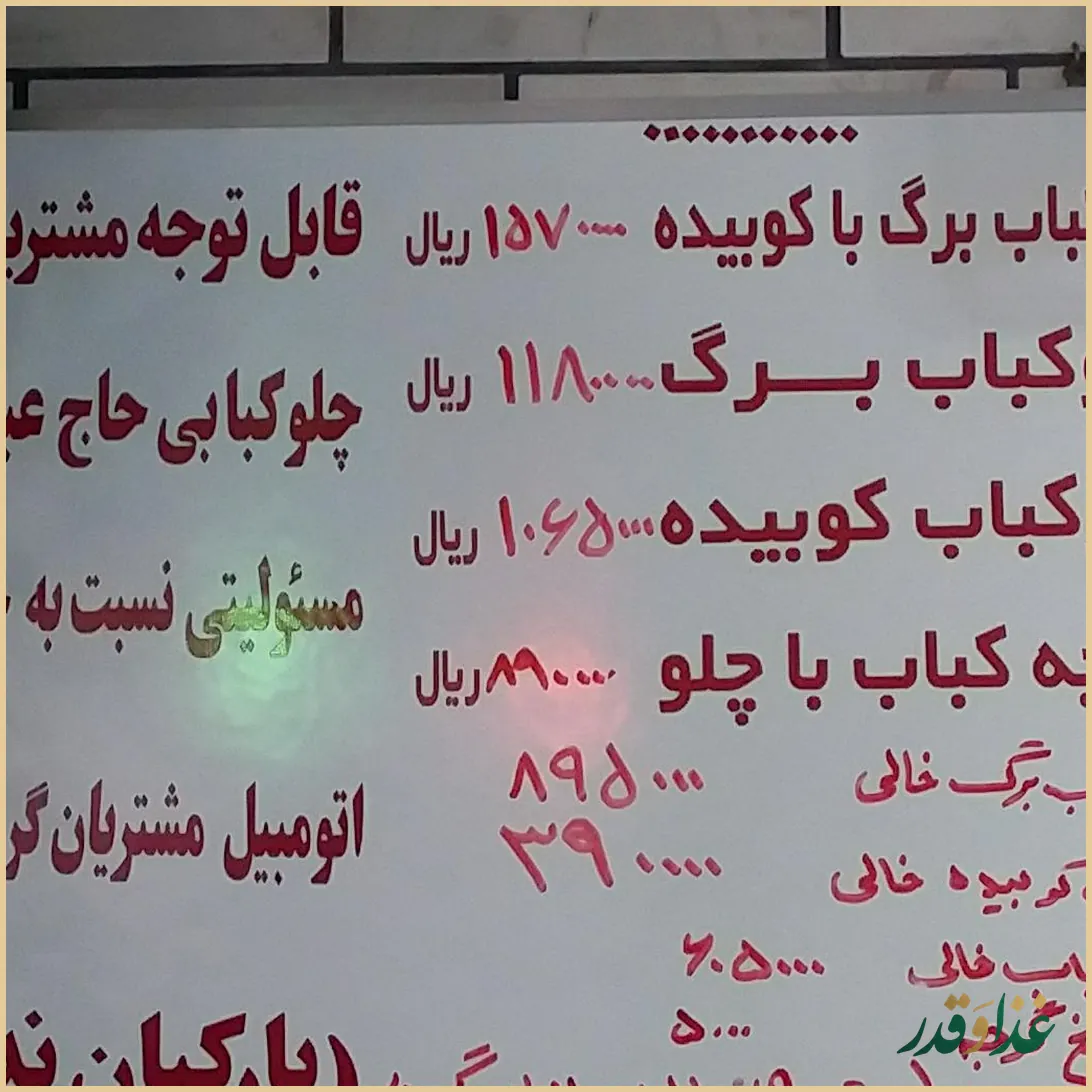 باب برگ با کوبیده ۱۵۷۰۰۰۰ ریال
کباب بـرگ ۱۱۸۰۰۰۰ ریال
کباب کوبیده ۱۰۶۵۰۰۰ ریال
کباب با چلو ۸۹۰۰۰۰ ریال
برگ خالی ۸۹۵۰۰۰
کوبیده خالی ۳۹۰۰۰۰
خالی ۶۰۵۰۰۰
۵۰۰۰
قابل توجه
چلوکبابی حاج
مسئولیتی نسبت به
اتومبیل مشتریان
(پارکبان
غذا و قدر